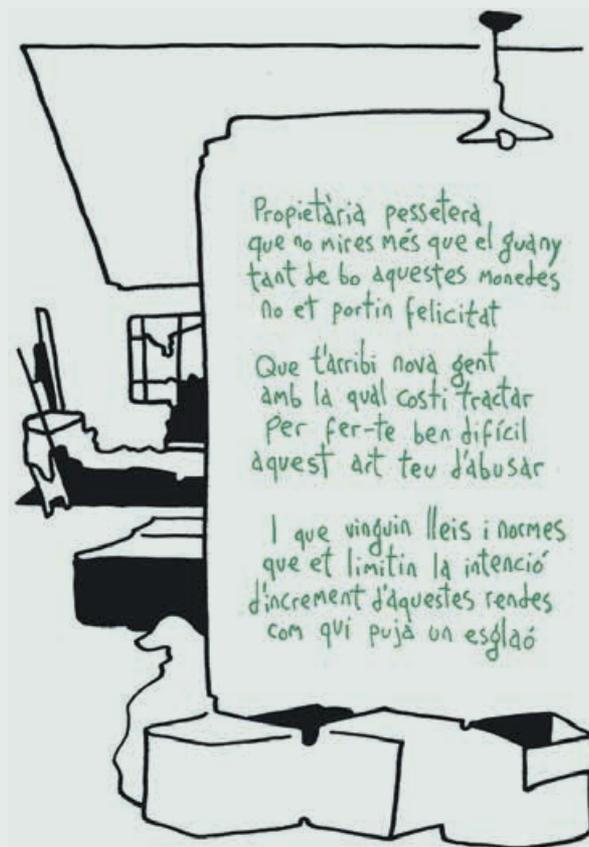 Propietària pessetera
que no mires més que el guany
tant de bo aquestes monedes
no et portin felicitat
Que t'arribi nova gent
amb la qual costi tractar
Per fer-te ben difícil
aquest art teu d'abusar
I que vinguin lleis i normes
que et limitin la intenció
d'increment d'aquestes rendes
com qui puja un esglaó